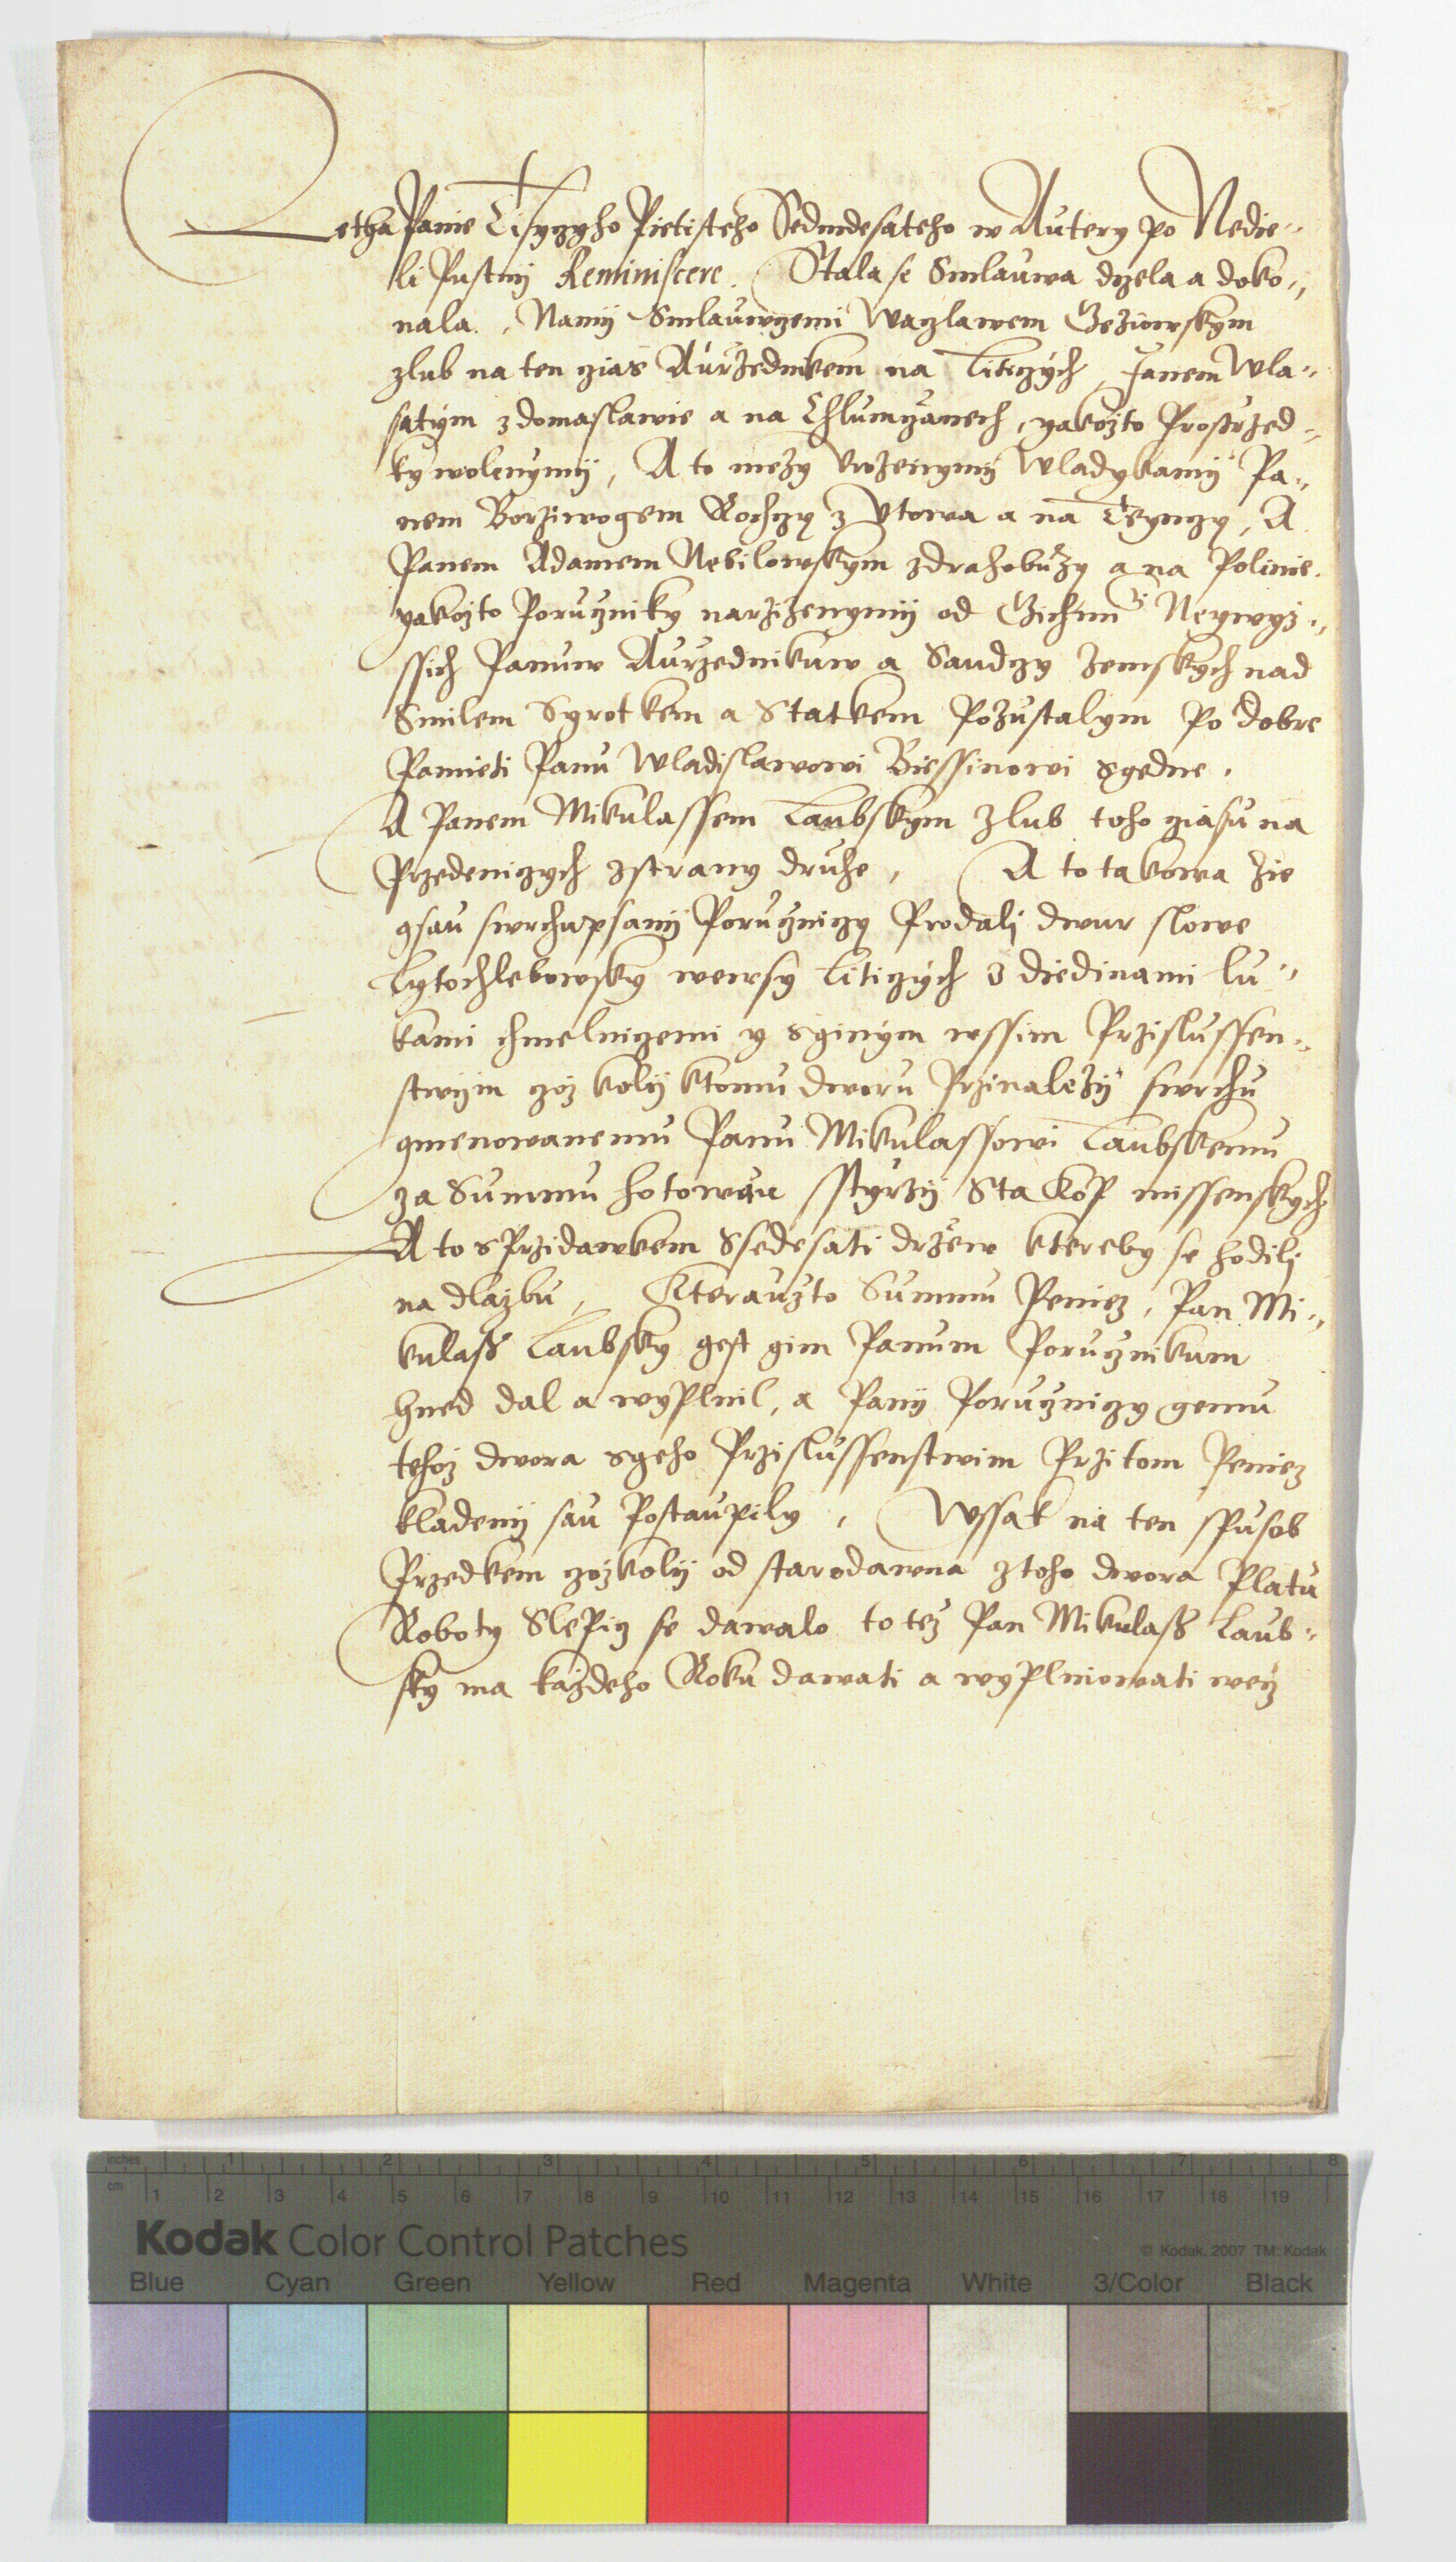 Letha Panie Tisyczyho Pietisteho Sedmdesateho w Autery po Nedie-
li Pustny Reminiscere. Stala se Smlauwa czela a doko-
nala. Namij Smlauwczemi Waczlawem Gezowskym
zlub na ten czias Aurzednikem na Liticzych, Janem Wla-
satym z domaslawie a na Chlumczanech, yakozto Prostrzed-
ky wolenymij, A to mezy Urozenymij Wladykamij Pa-
nem Borziwogem Rochczy z Utowa a na Teynczy, A
Panem Adamem Nebilowskym z drahobuzy a na Polinie.
yakozto Poruczniky narzizenymij od Gich mti Neywyz-
ssich Panuw Aurzednikuw a Saudczy zemskych nad
Smilem Syrotkem a Statkem Pozustalym Po dobre
Pamieti Panu Wladislawowi Biessinowi s gedne.
A Panem Mikulassem Laubskym z lub toho cziasu na
Przedeniczych z strany druhe, A to takowa zie
gsau swrchupsanij Poruczniczy Prodalj dwur slowe
Lytochlebowsky wewsy Liticzych z diedinami lu-
kami chmelniczemi y s ginym wssim Przislussen-
stwijm czoz kolij k tomu dworu Przinalezij swrchu
gmenowanemu Panu Mikulassowi Laubskemu
za Summu hotowau sstyrzij Sta Kop missenskych
A to s Przidawkem Ssedesati drzew ktereby se hodilj
na dlazbu, Kterauzto Summu Peniez, Pan Mi-
kulass Laubsky gest gim Panum Porucznikum
hned dal a wyplnil, a Panij Poruczniczy gemu
tehoz dwora s geho Przislussenstwim Przi tom Peniez
kladenij sau Postaupily, Wssak na ten spusob
Przedkem czozkolij od starodawna z toho dwora Platu
Roboty Slepicz se dawalo to tez Pan Mikulass Laub-
sky ma kazdeho Roku dawati a wyplniowati